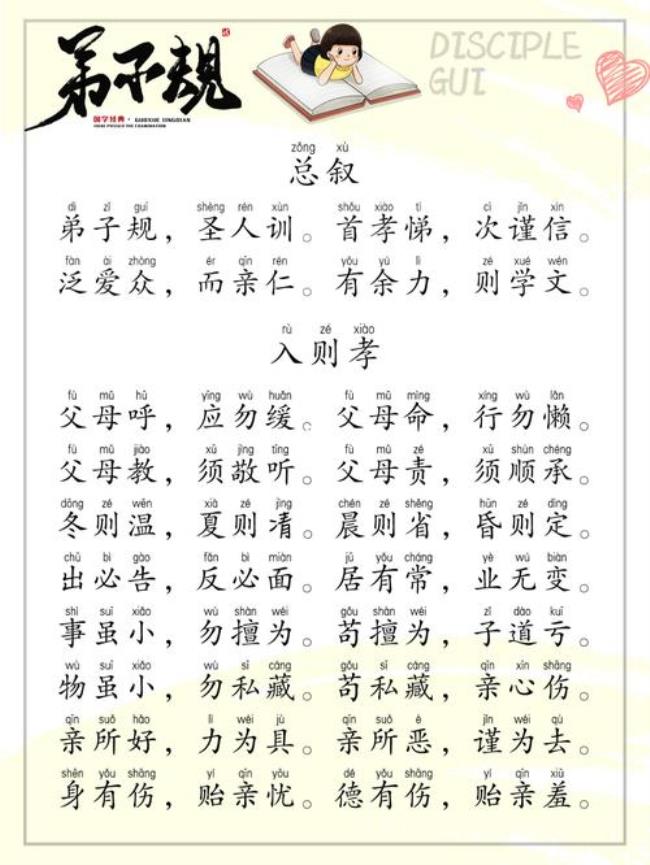 弟子规
DISCIPLE
GUI
国学经典·
zǒng xù
总叙
dì zǐ guī shèng rén xùn shǒu xiào tì cì jǐn xìn
弟子规，圣人训。首孝悌，次谨信。
fàn ài zhòng ér qīn rén yǒu yú lì zé xué wén
泛爱众，而亲仁。有余力，则学文。
rù zé xiào
入则孝
fù mǔ hū yīng wù huǎn fù mǔ mìng xíng wù lǎn
父母呼，应勿缓。父母命，行勿懒。
fù mǔ jiào xū jìng tīng fù mǔ zé xū shùn chéng
父母教，须敬听。父母责，须顺承。
dōng zé wēn xià zé jìng chén zé shěng hūn zé dìng
冬则温，夏则凊。晨则省，昏则定。
chū bì gào fǎn bì miàn jū yǒu cháng yè wú biàn
出必告，反必面。居有常，业无变。
shì suī xiǎo wù shàn wéi gǒu shàn wéi zǐ dào kuī
事虽小，勿擅为。苟擅为，子道亏。
wù suī xiǎo wù sī cáng gǒu sī cáng qīn xīn shāng
物虽小，勿私藏。苟私藏，亲心伤。
qīn suǒ hào lì wèi jù qīn suǒ è jǐn wèi qù
亲所好，力为具。亲所恶，谨为去。
shēn yǒu shāng yí qīn yōu dé yǒu shāng yí qīn xiū
身有伤，贻亲忧。德有伤，贻亲羞。